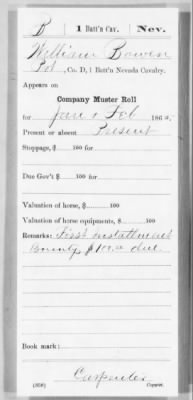 B | 1 Batt'n Cav. | Nev.
William Bowen
Pvt, Co. D, 1 Batt'n Nevada Cavalry.
Appears on
Company Muster Roll
for Jan & Feb, 186
Present or absent Present
Stoppage, $ 100 for
Due Gov't $ 100 for
Valuation of horse, $ 100
Valuation of horse equipments, $ 100
Remarks: First installment
Bounty $100.00 due.
Book mark:
(358)
Copyist.